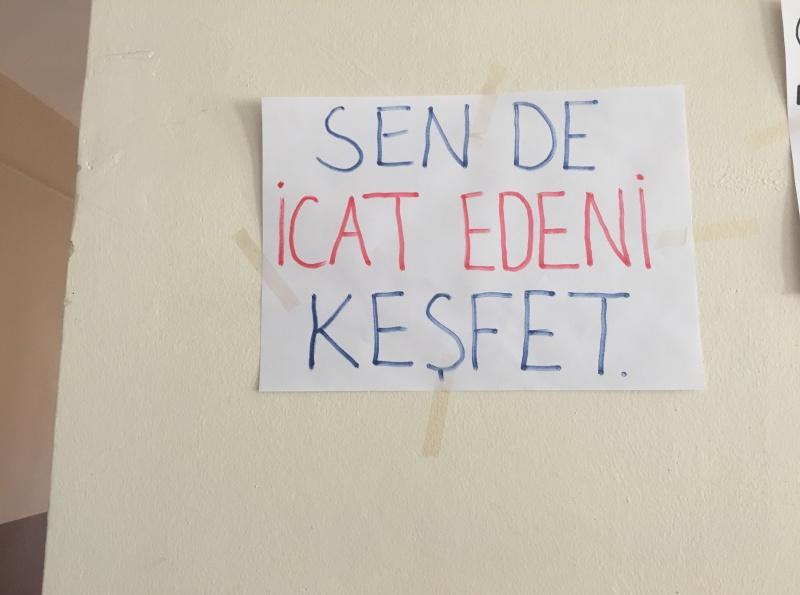 SEN DE
İCAT EDENİ
KEŞFET.